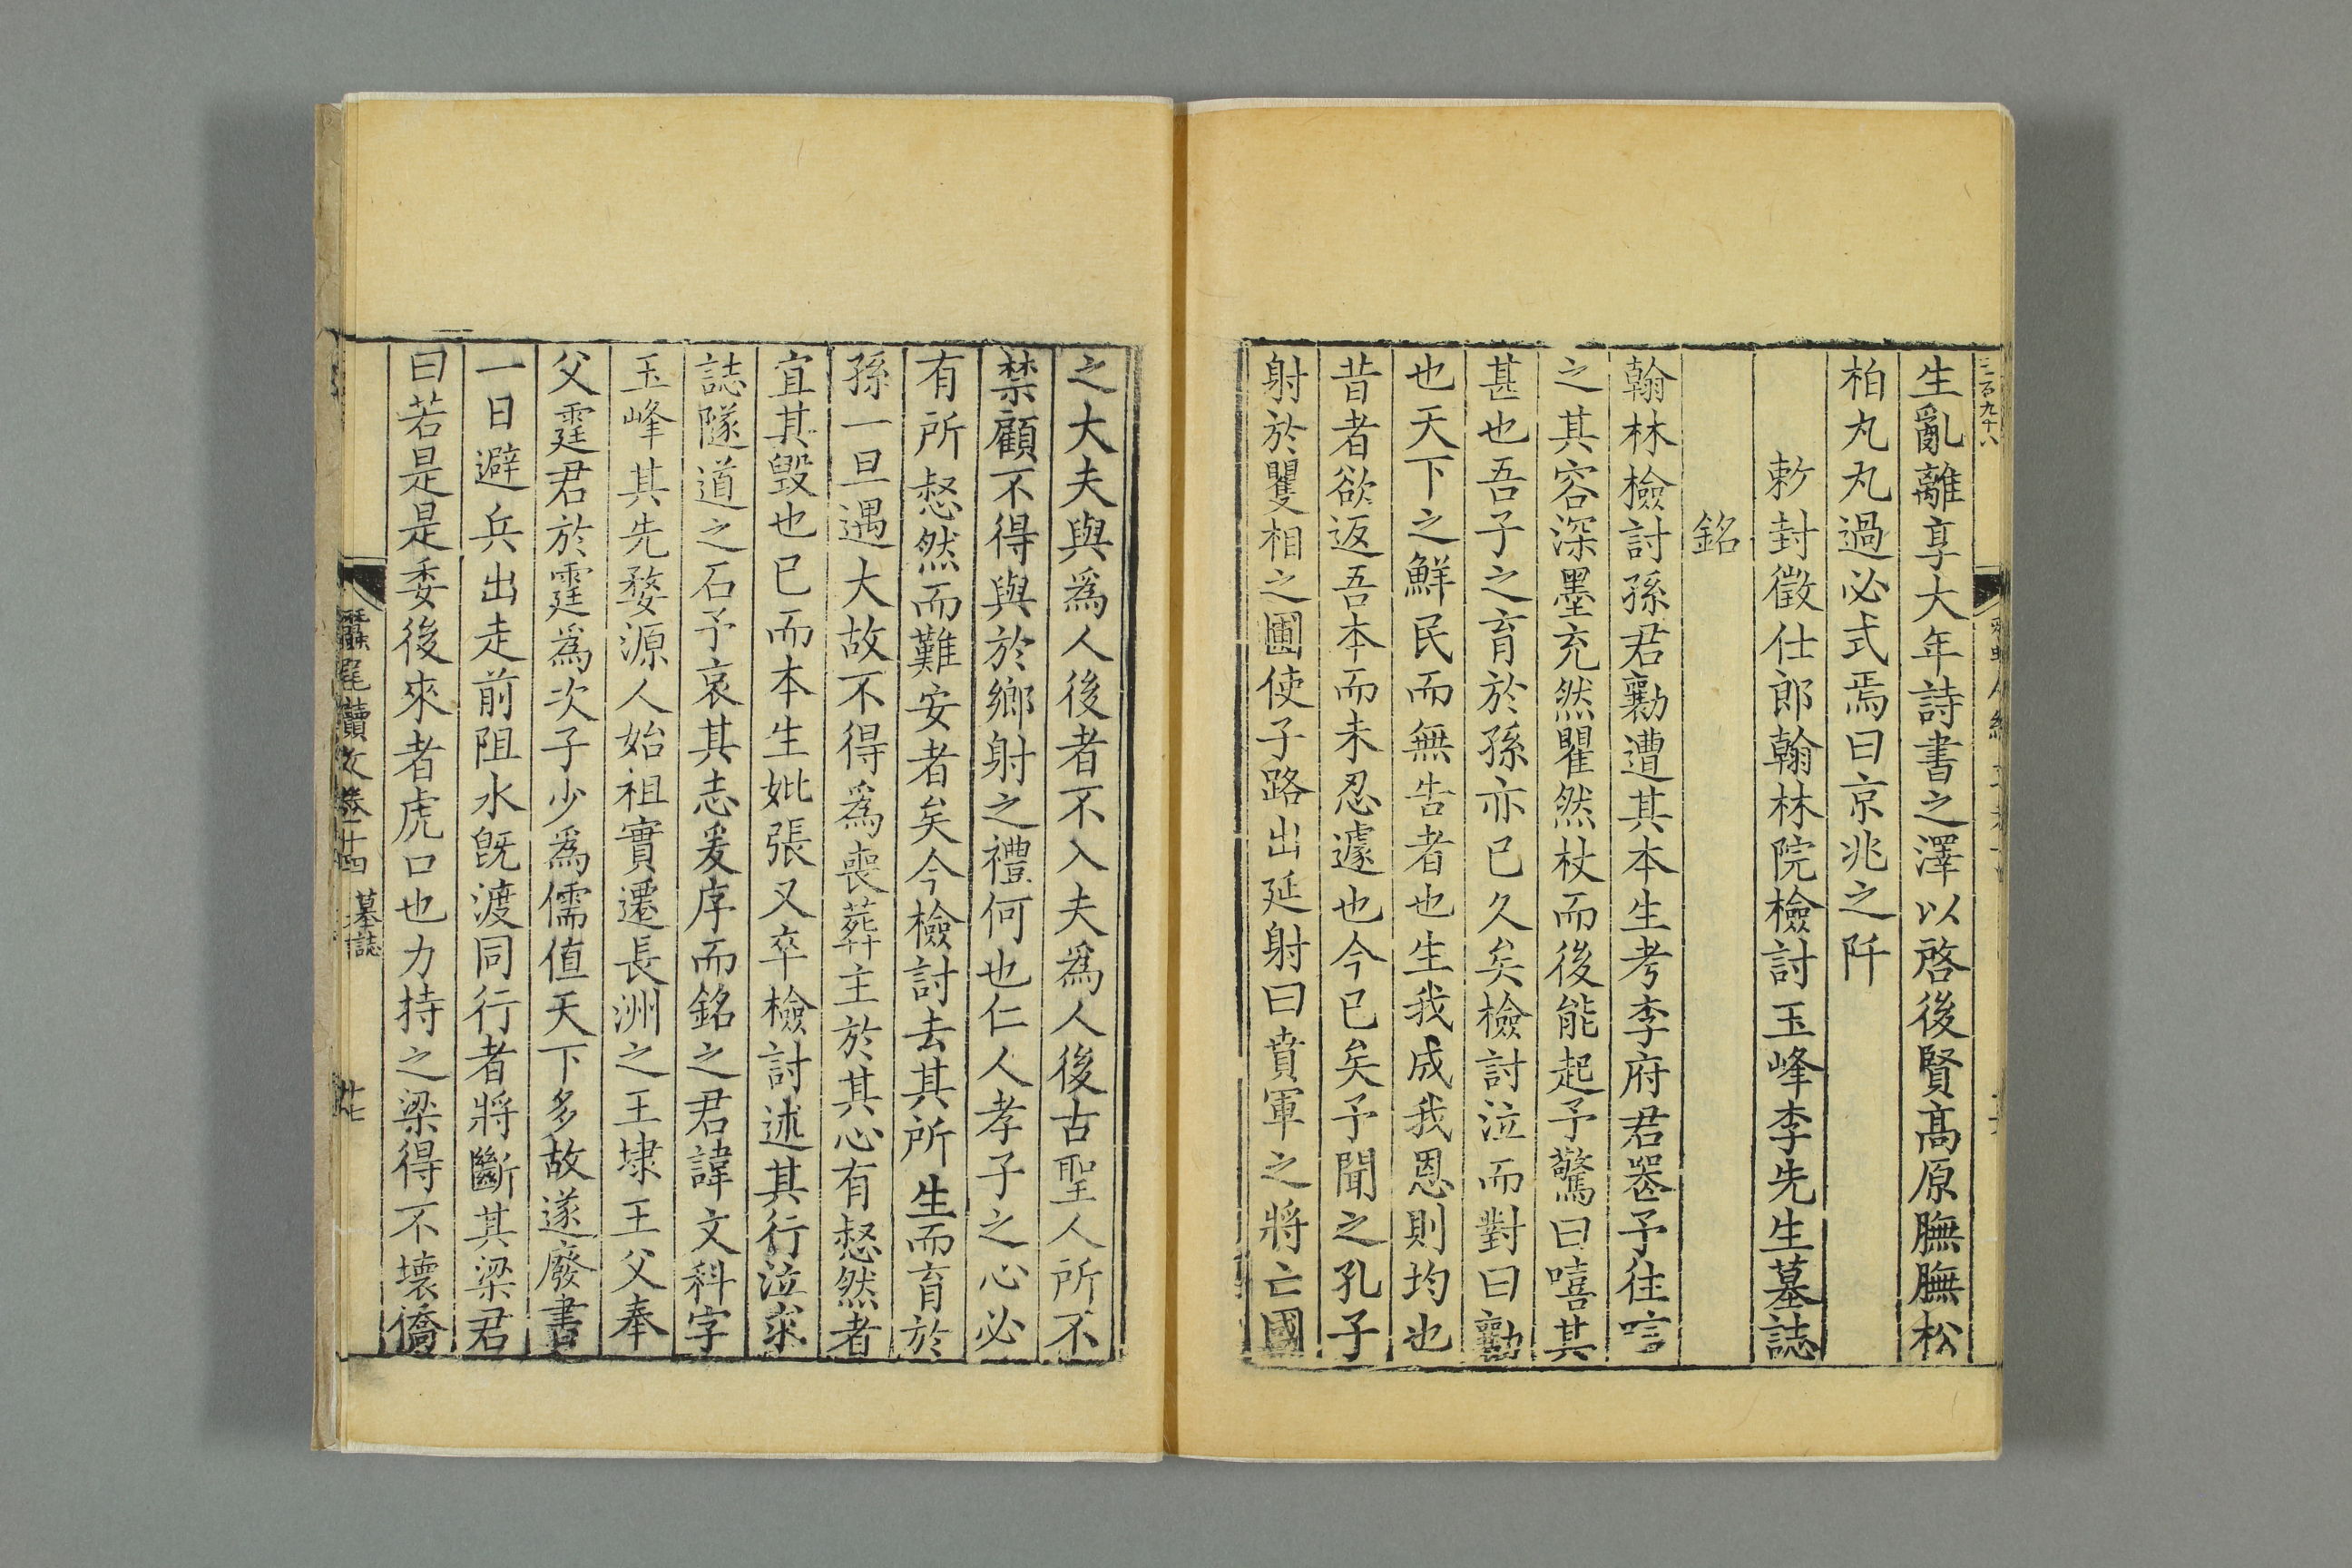 三百九十八
生亂離享大年詩書之澤以啓後賢高原膴膴松
柏丸丸過必式焉曰京兆之阡
敕封徵仕郎翰林院檢討玉峰李先生墓誌
銘
翰林檢討孫君勷遭其本生考李府君喪予往唁
之其容深墨充然瞿然杖而後能起予驚曰嘻其
甚也吾子之育於孫亦已久矣檢討泣而對曰勷
也天下之鮮民而無告者也生我成我恩則均也
昔者欲返吾本而未忍遽也今已矣予聞之孔子
射於矍相之圃使子路出延射曰賁軍之將亡國
之大夫與為人後者不入夫為人後古聖人所不
禁顧不得與於鄉射之禮何也仁人孝子之心必
有所愸然而難安者矣今檢討去其所生而育於
孫一旦遇大故不得為喪葬主於其心有愸然者
宜其毀也已而本生妣張又卒檢討述其行泣求
誌隧道之石予哀其志爰序而銘之君諱文科字
玉峰其先婺源人始祖實遷長洲之王埭王父奉
父霆君於霆為次子少為儒值天下多故遂廢書
一日避兵出走前阻水旣渡同行者將斷其梁君
曰若是是委後來者虎口也力持之梁得不壞僑
蠶尾續文卷二十四
墓誌
廿七